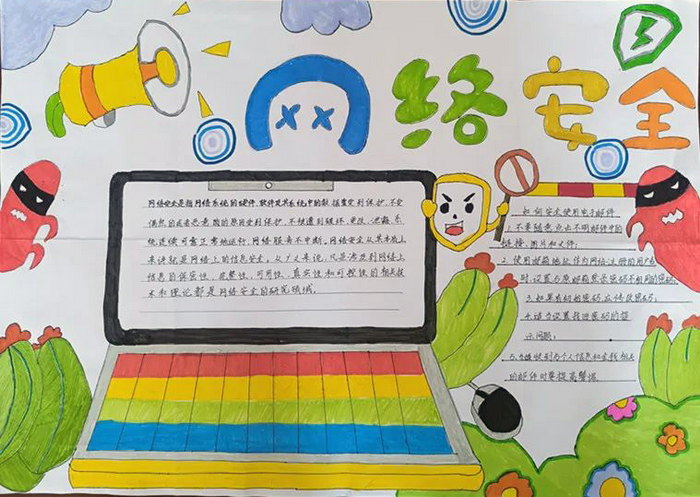 网络安全
网络安全是指网络系统的硬件、软件及其系统中的数据受到保护，不受
偶然的或者恶意的原因受到保护，不被遭到破坏、更改、泄露，系
统连续可靠正常地运行，网络服务不中断。网络安全从其本质上
来讲就是网络上的信息安全。从广义来说，凡是涉及到网络上
信息的保密性、完整性、可用性、真实性和可控性的相关技
术和理论都是网络安全的研究领域。
如何安全使用电子邮件
1. 不要随意点击不明邮件中的
链接、图片和文件；
2. 使用邮箱地址作为网络注册的用户名
时，设置与原邮箱登录密码不相同的密码；
3. 如果有初始密码，应修改密码；
4. 适当设置找回密码的提
示问题；
5. 当收到与个人信息和金钱相关
的邮件时要提高警惕